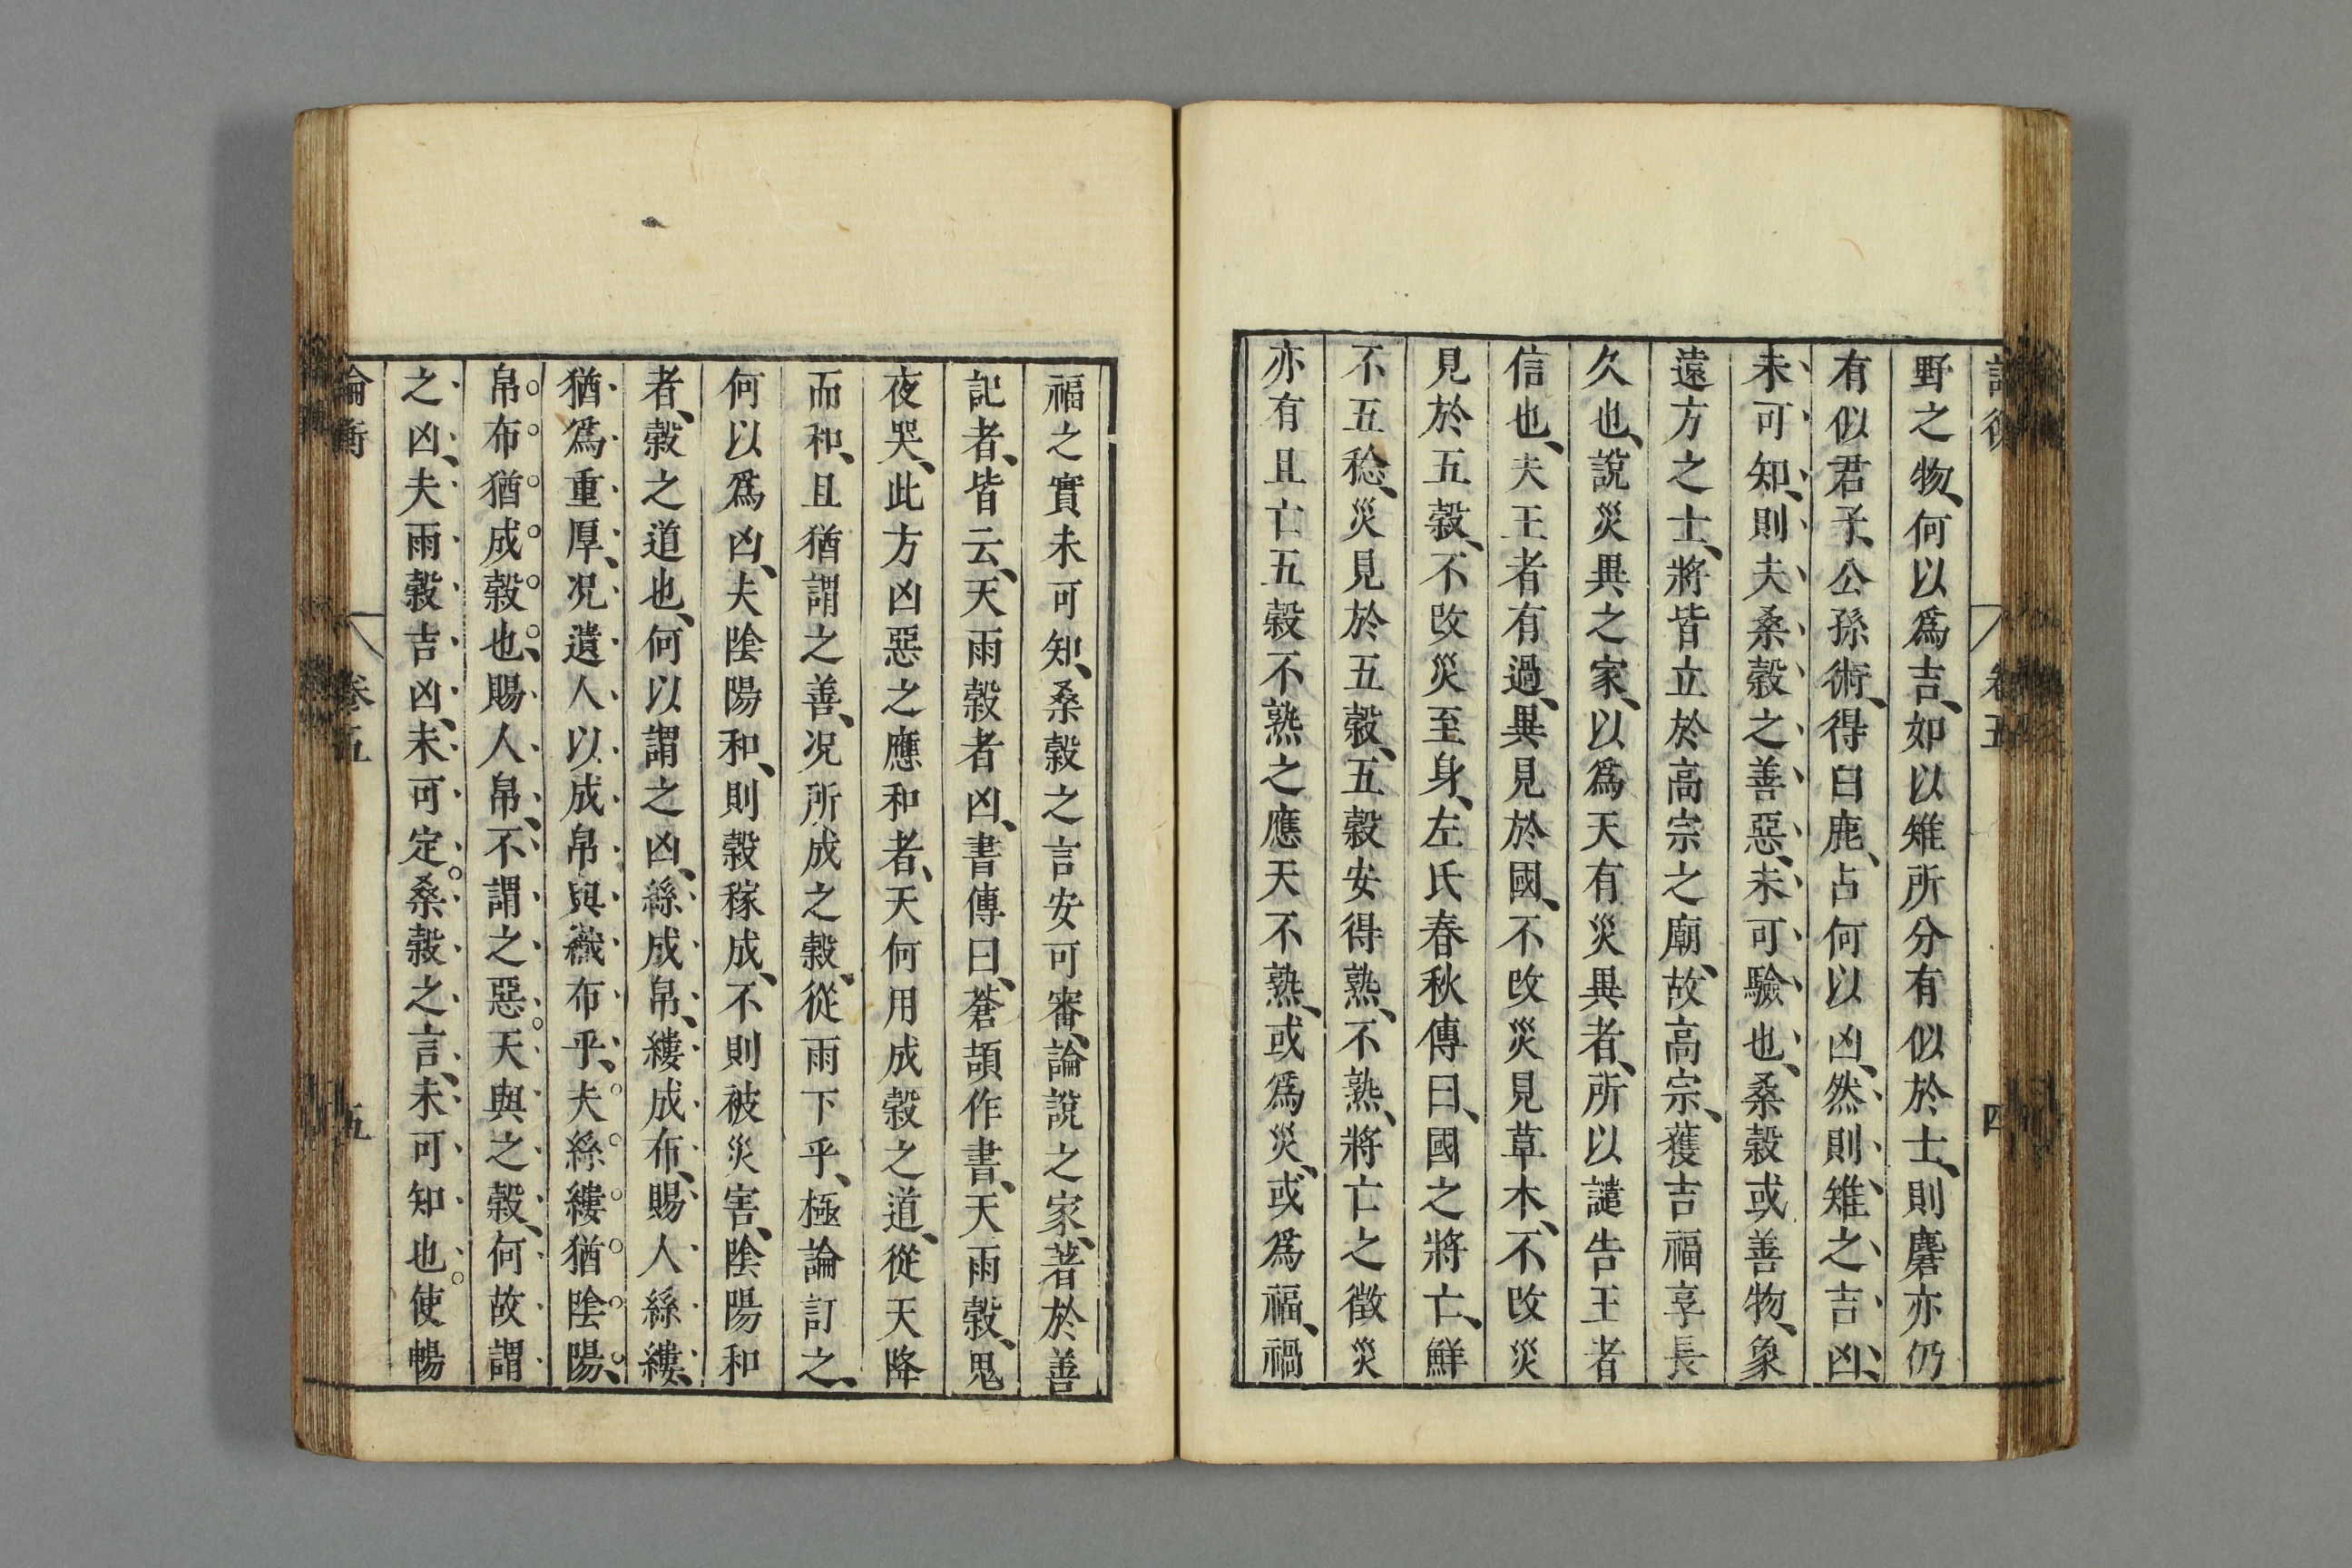 野之物、何以爲吉、如以雉所分有似於士、則麏亦仍
有似君子、公孫術、得白鹿、占何以凶、然則雉之吉凶、
未可知、則夫桑穀之善惡、未可驗也、桑穀或善物、象
遠方之士、將皆立於高宗之廟、故高宗、獲吉福享長
久也、說災異之家、以爲天有災異者、所以譴告王者
信也、夫王者有過、異見於國、不改災見草木、不改災
見於五穀、不改災至身、左氏春秋傳曰、國之將亡、鮮
不五稔、災見於五穀、五穀安得熟、不熟、將亡之徵災
亦有且亡五穀不熟之應天不熟、或爲災、或爲福、禍
福之實未可知、桑穀之言安可審、論說之家、著於善
記者、皆云、天雨穀者凶、書傳曰、蒼頡作書、天雨穀、鬼
夜哭、此方凶惡之應和者、天何用成穀之道、從天降
而和、且猶謂之善、况所成之穀、從雨下乎、極論訂之、
何以爲凶、夫陰陽和、則穀稼成、不則被災害、陰陽和
者、穀之道也、何以謂之凶、絲成帛、縷成布、賜人絲縷、
猶爲重厚、况遺人以成帛與織布乎、夫絲縷猶陰陽、
帛布猶成穀也、賜人帛、不謂之惡。天與之穀、何故謂
之凶、夫雨穀吉凶、未可定。桑穀之言、未可知也。使暢
論衡
卷五
五